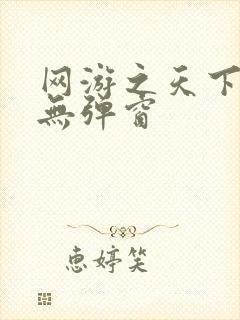 网游之天下
無弹窗
惠婷笑